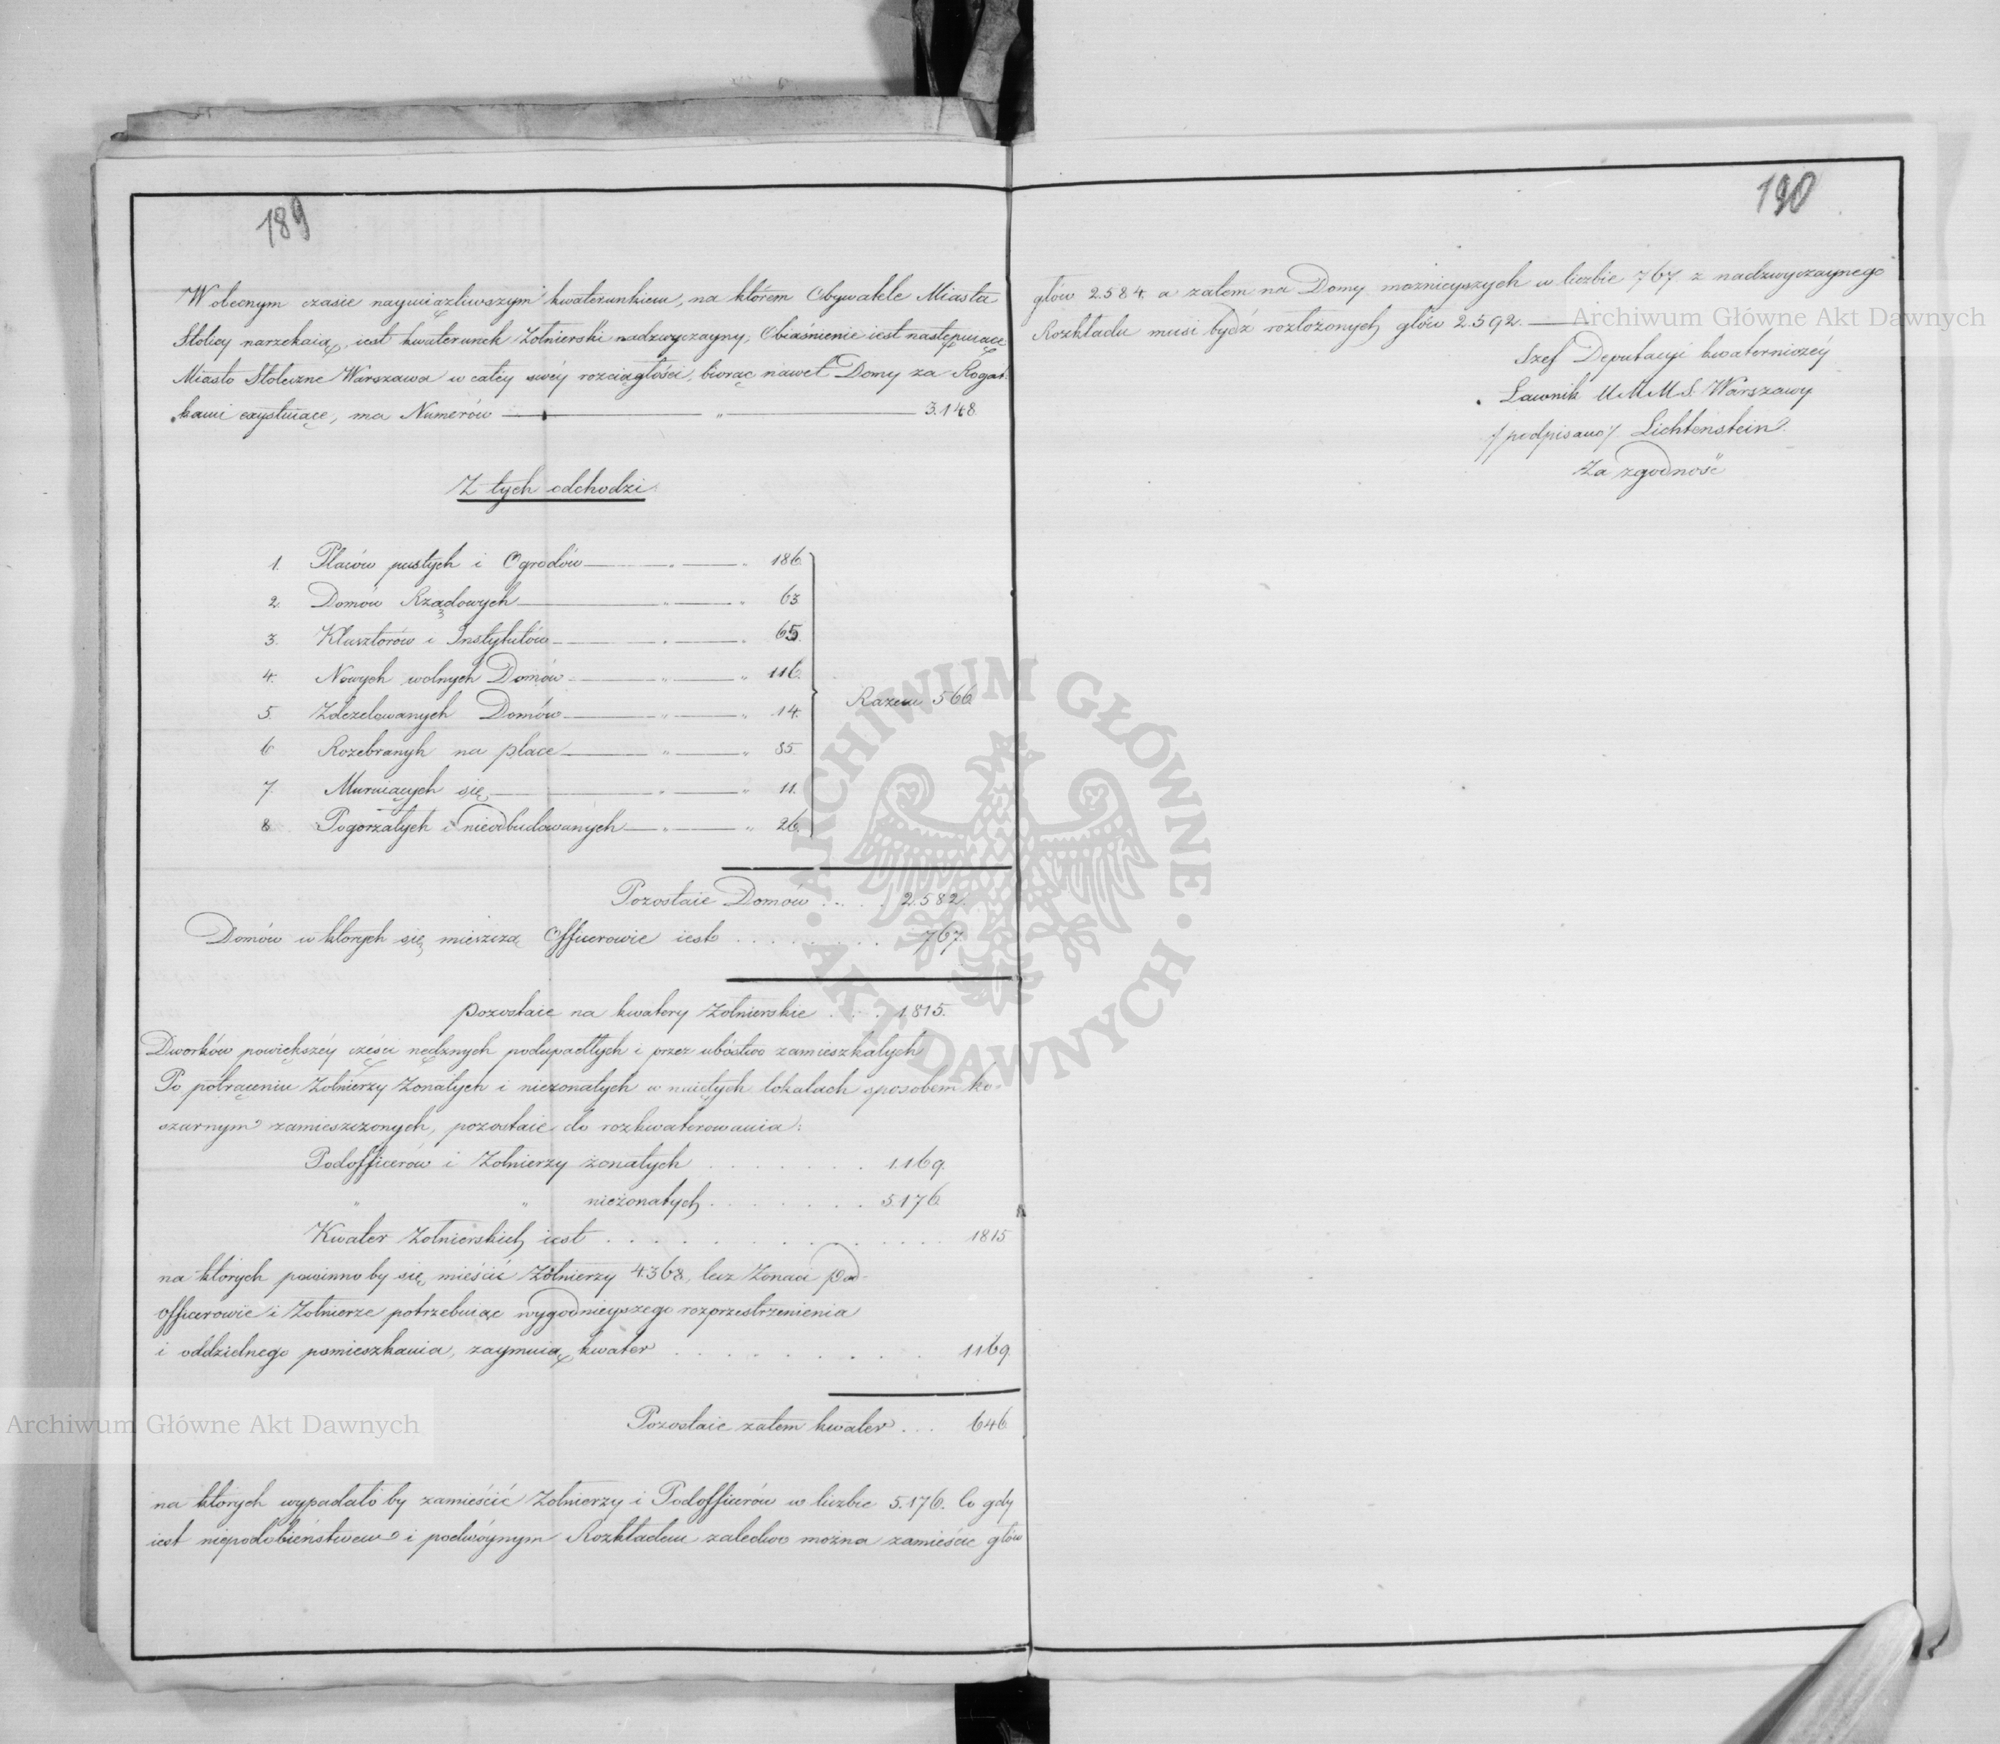 189
W obecnym czasie nayuciążliwszym kwaterunkiem, na którem Obywatele Miasta
Stolicy narzekaią, iest kwaterunek Żołnierski nadzwyczayny, Obiaśnienie iest następuiące
Miasto Stołeczne Warszawa w całey swéy rozciągłości, biorąc nawet Domy za Rogat-
kami exystuiące, ma Numerów — „ — 3.148.
Z tych odchodzi
1. Placów pustych i Ogrodów — „ — „ 186.
2. Domów Rządowych — „ — „ 63
3. Klasztorów i Instytutów — „ — „ 65.
4. Nowych wolnych Domów — „ — „ 116.
5. Zdezelowanych Domów — „ — „ 14.
6 Rozebranyh na place — „ — „ 85.
7. Muruiących się — „ — „ 11.
8 Pogorzałych i nieodbudowanych — „ — „ 26.
Razem 566.
Pozostaie Domów . . . . 2.582.
Domów w których się mieszczą Officerowie iest . . . . . . . . 767.
pozostaie na kwatery Żołnierskie . . . 1815.
Dworków powiększéy części nędznych podupadłych i przez ubóstwo zamieszkałych
Po potrąceniu Żołnierzy Żonatych i nieżonatych w naiętych lokalach sposobem ko-
szarnym zamieszczonych, pozostaie do rozkwaterowania:
Podofficerów i Żołnierzy żonatych . . . . . . . 1.169.
„ „ nieżonatych . . . . . . . 5.176.
Kwater Żołnierskich iest . . . . . . . . . . . . . 1815
na których powinno by się mieścić Żołnierzy 4.368, lecz Żonaci pod-
officerowie i Żołnierze potrzebuiąc wygodnieyszego rozprzestrzenienia
i oddzielnego pomieszkania, zaymuią kwater . . . . . . . . . . 1169.
Pozostaie zatem kwater . . . 646
na których wypadało by zamieścić Żołnierzy i Podofficerów w liczbie 5.176. Co gdy
iest niepodobieństwem i podwóynym Rozkładem zaledwo można zamieścić głów
190
głów 2.584, a zatem na Domy możnieyszych w liczbie 767 z nadzwyczaynego
Rozkładu musi bydź rozłożonych głów 2.592. —
Szef Deputacyi kwaterniczéy
Ławnik U. M. M. S. Warszawy
/podpisano/ Lichtenstein.
Za zgodność
Archiwum Główne Akt Dawnych
Archiwum Główne Akt Dawnych
ARCHIWUM GŁÓWNE · AKT DAWNYCH ·